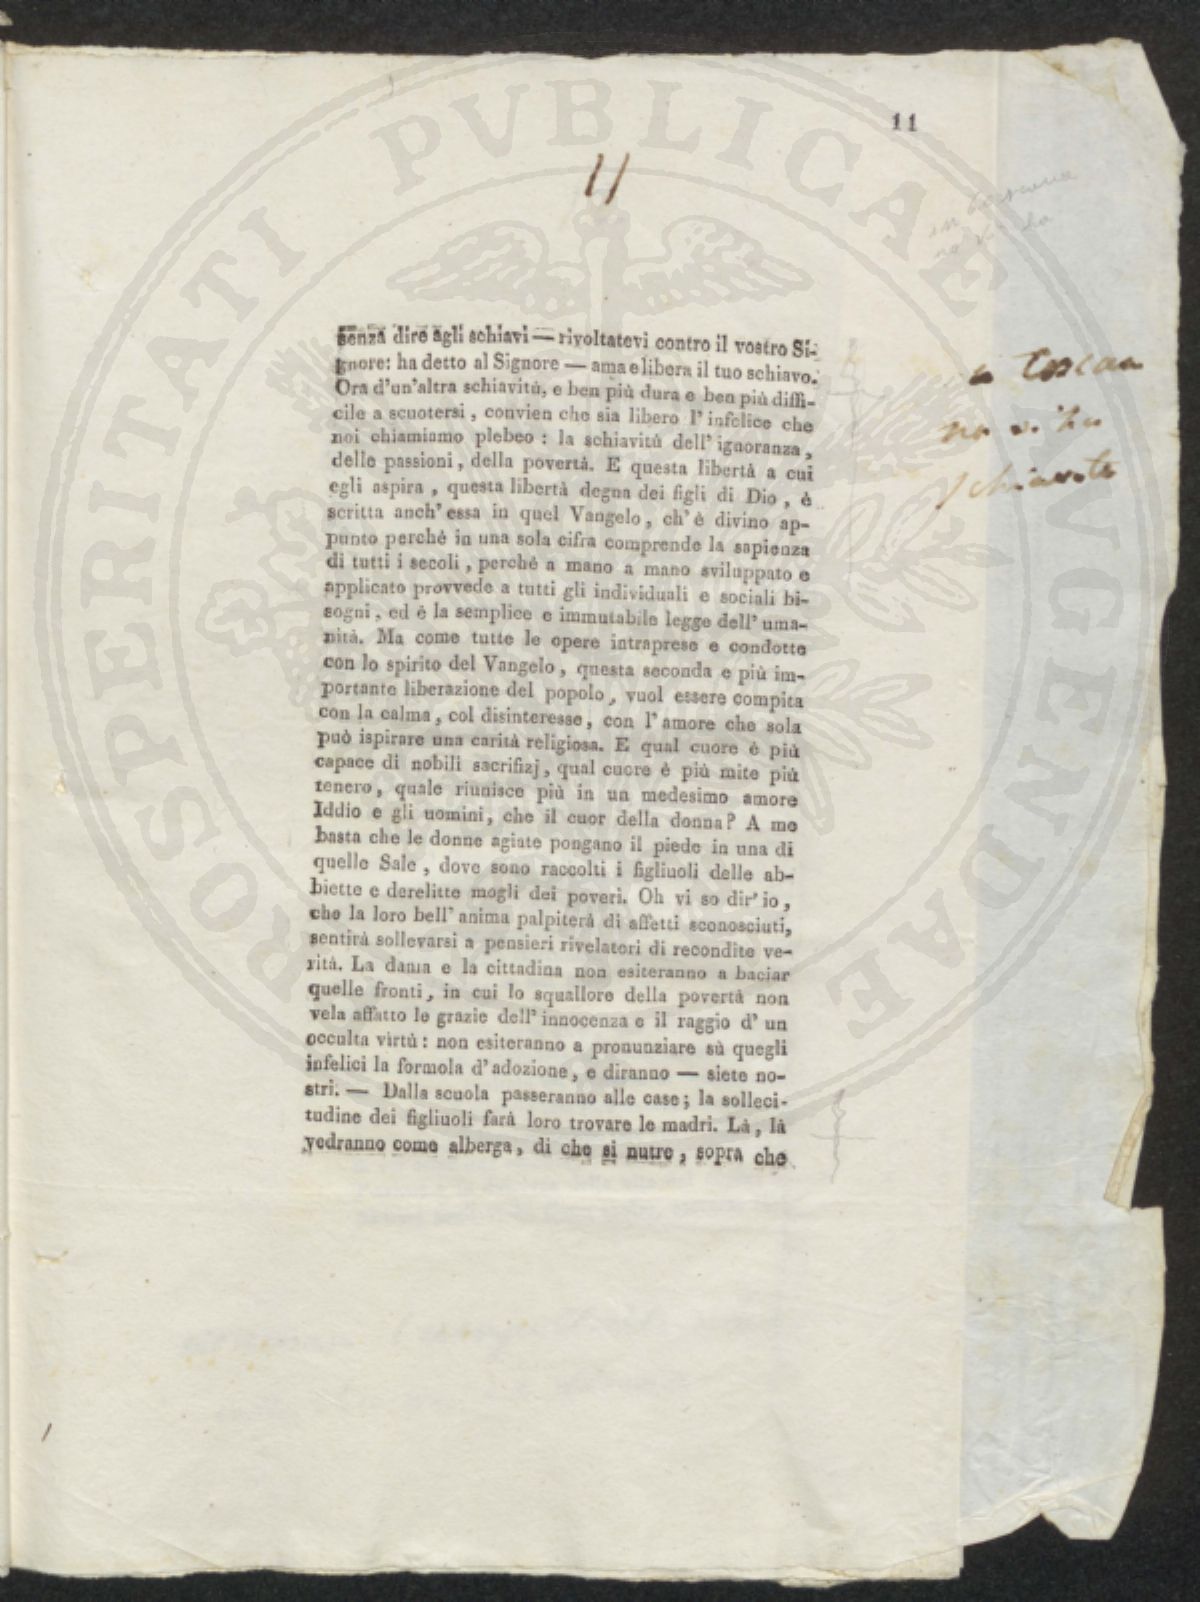 11
11
senza dire agli schiavi — rivoltatevi contro il vostro Si-
gnore: ha detto al Signore — ama e libera il tuo schiavo.
Ora d'un'altra schiavitù, e ben più dura e ben più diffi-
cile a scuotersi, convien che sia libero l'infelice che
noi chiamiamo plebeo: la schiavitù dell'ignoranza,
delle passioni, della povertà. E questa libertà a cui
egli aspira, questa libertà degna dei figli di Dio, è
scritta anch'essa in quel Vangelo, ch'è divino ap-
punto perchè in una sola cifra comprende la sapienza
di tutti i secoli, perchè a mano a mano sviluppato e
applicato provvede a tutti gli individuali e sociali bi-
sogni, ed è la semplice e immutabile legge dell'uma-
nità. Ma come tutte le opere intraprese e condotte
con lo spirito del Vangelo, questa seconda e più im-
portante liberazione del popolo, vuol essere compita
con la calma, col disinteresse, con l'amore che sola
può ispirare una carità religiosa. E qual cuore è più
capace di nobili sacrifizj, qual cuore è più mite più
tenero, quale riunisce più in un medesimo amore
Iddio e gli uomini, che il cuor della donna? A me
basta che le donne agiate pongano il piede in una di
quelle Sale, dove sono raccolti i figliuoli delle ab-
biette e derelitte mogli dei poveri. Oh vi so dir'io,
che la loro bell'anima palpiterà di affetti sconosciuti,
sentirà sollevarsi a pensieri rivelatori di recondite ve-
rità. La dama e la cittadina non esiteranno a baciar
quelle fronti, in cui lo squallore della povertà non
vela affatto le grazie dell'innocenza e il raggio d'un
occulta virtù: non esiteranno a pronunziare sù quegli
infelici la formola d'adozione, e diranno — siete no-
stri. — Dalla scuola passeranno alle case; la solleci-
tudine dei figliuoli farà loro trovare le madri. Là, là
vedranno come alberga, di che si nutre, sopra che
PROSPERITATI PVBLICAE AVGENDAE